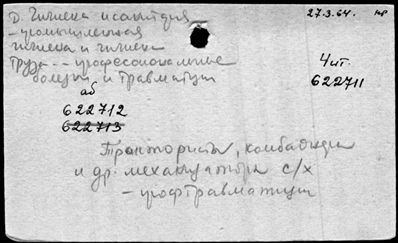 Д. Гигиена и санитария 27.3.64. нр
– промышленная
гигиена и гигиена
труда -- профессиональные
болезни и травматизм
Чит.
622711
аб
622712
622713
Трактористы, комбайнеры
и др. механизаторы с/х
– профтравматизм